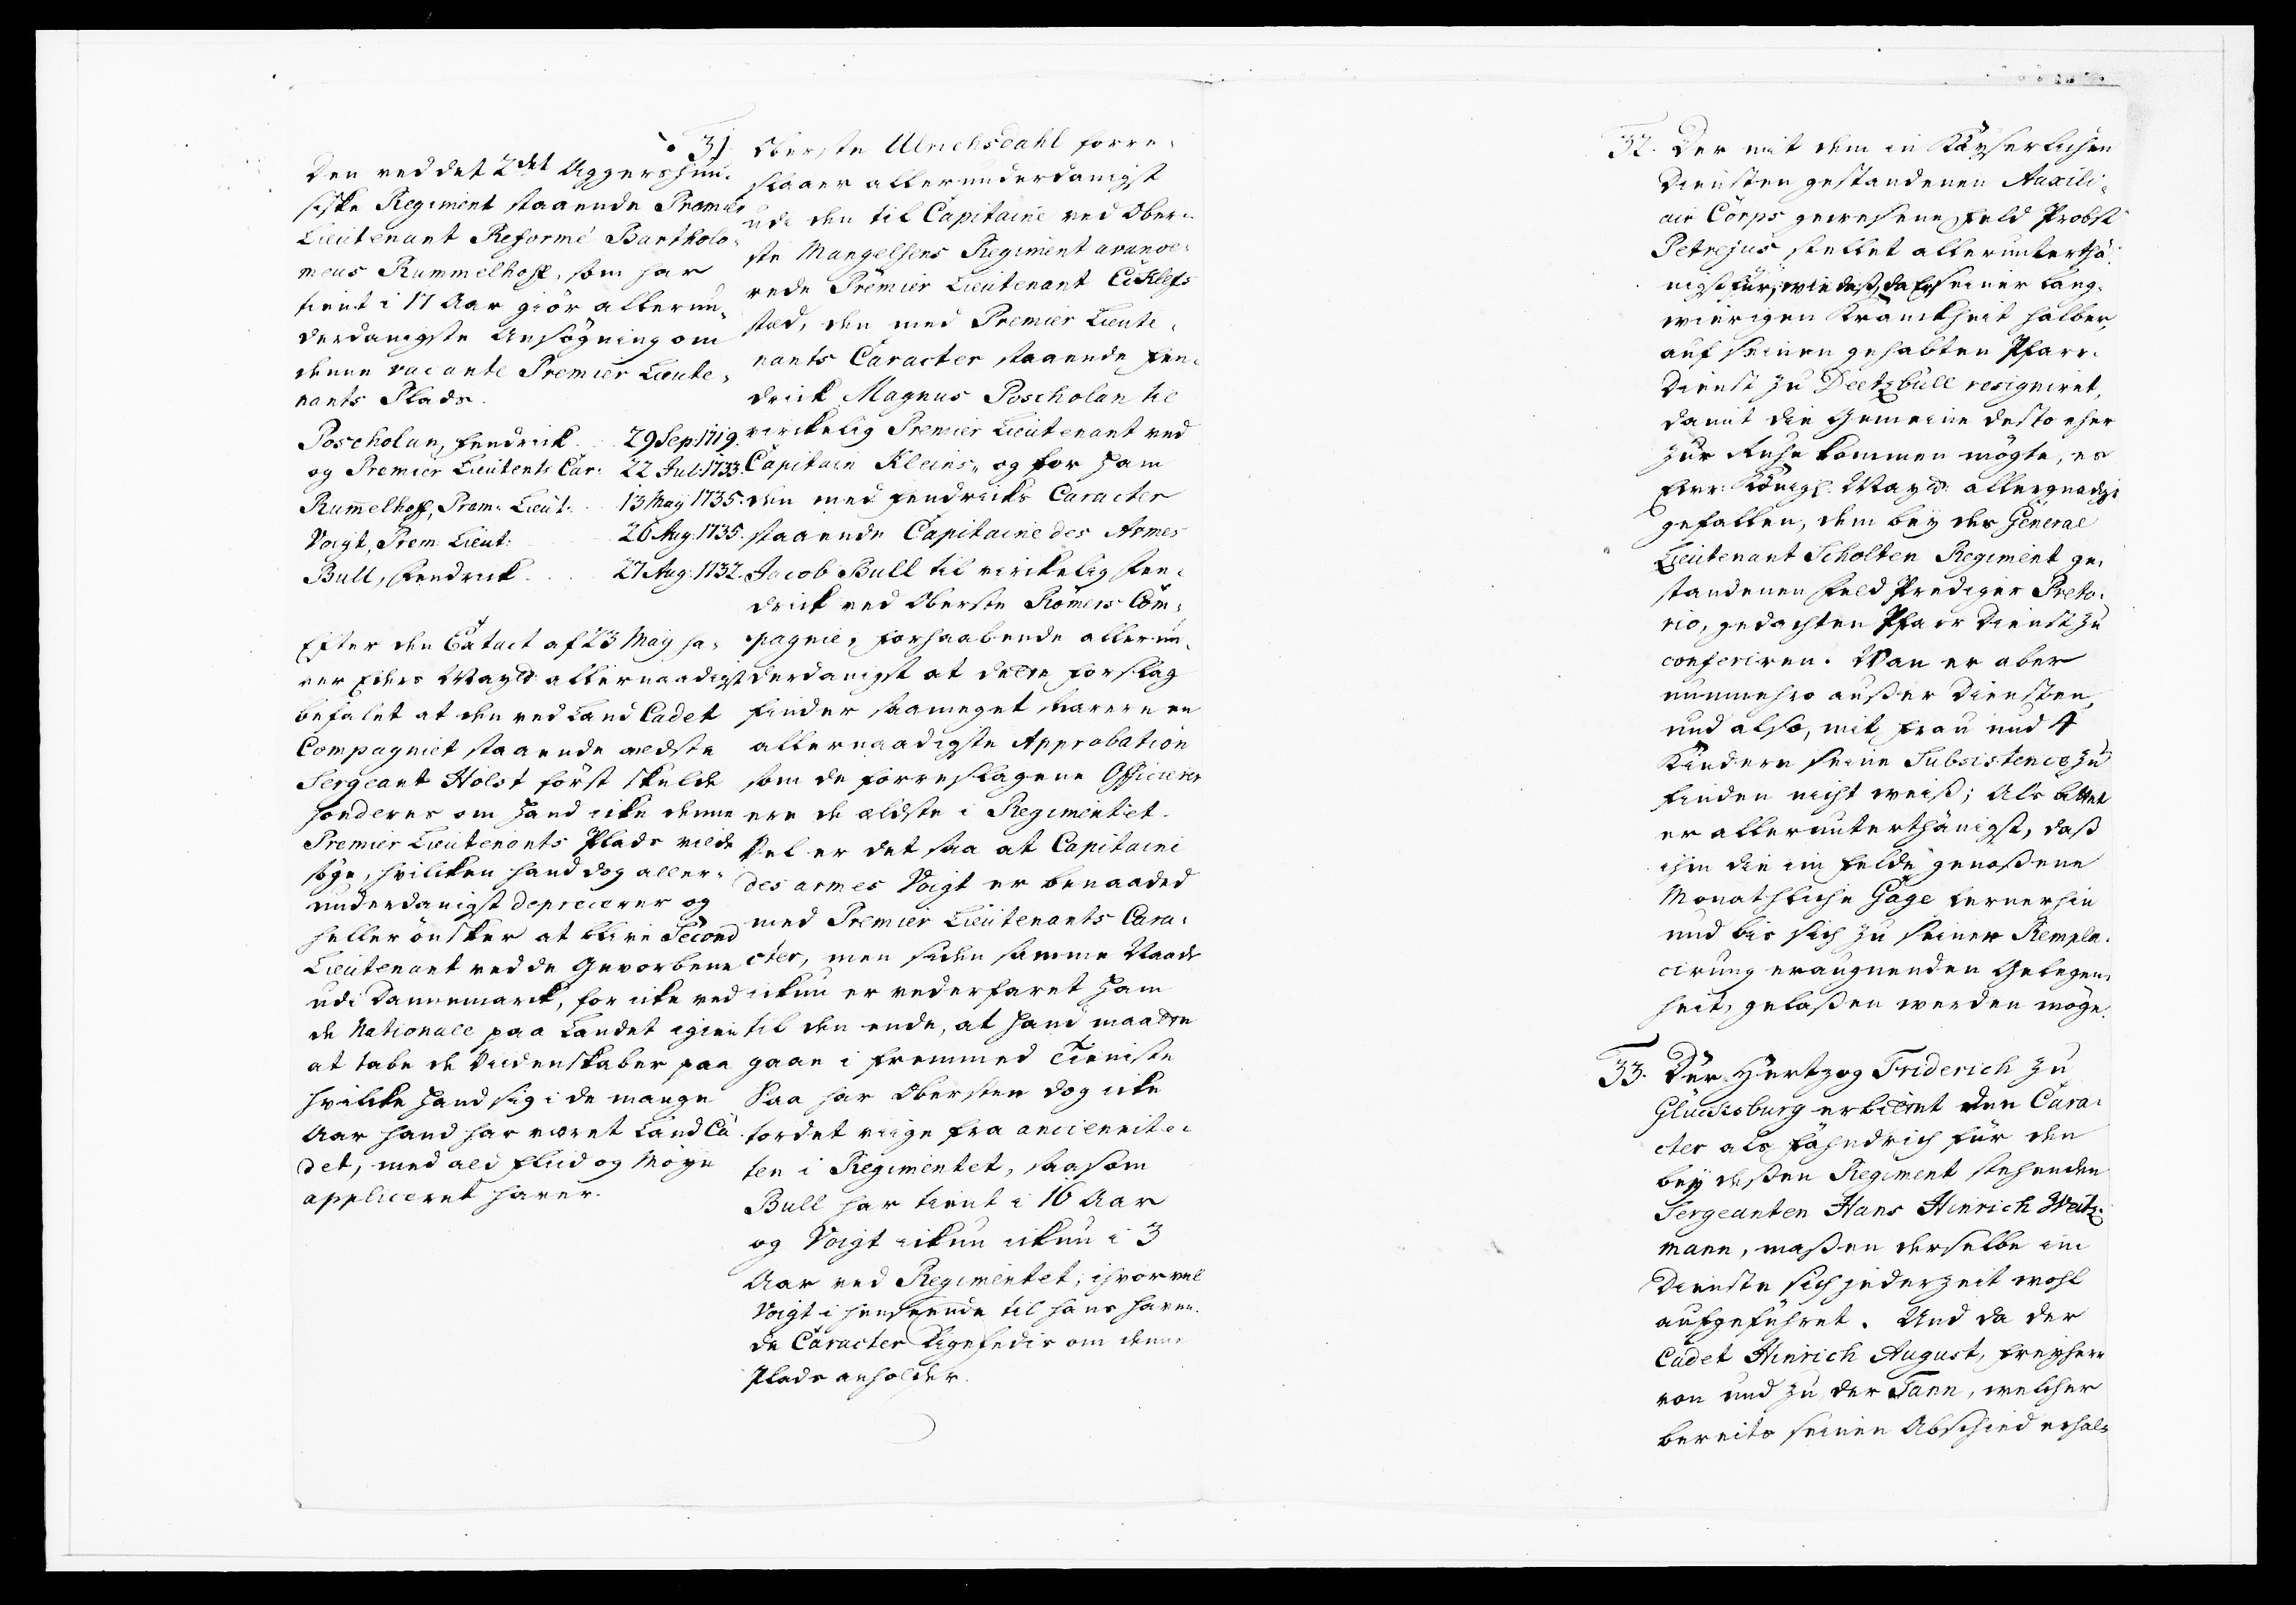 31.
Den ved det 2det Aggershuu-
siske Regiment staaende Premier
Lieutenant Reformé Bartholo-
meus Rummelhoff, som har
tient i 17 Aar giør allerun-
derdanigste Ansøgning om
denne vacante Premier Lieute-
nants Plads.
Poscholan, Fendrick . . 29 Sep: 1719.
og Premier Lieutents Car: 22 Jul: 1733.
Rum̃elhoff, Prem: Lieut: . . 13 May 1735.
Voigt, Prem: Lieut: . . . 26 Aug: 1735.
Bull, Fendrick . . . 27 Aug: 1732.
Efter den Extract af 23 May ha-
ver Eders Mayts allernaadigst
befalet at den ved Land Cadet
Compagniet staaende ældste
Sergeant Holst først skulde
høderes om hand icke denne
Premier Lieutenants Plads vilde
søge, hvilcken hand dog aller-
underdanigst deprecerer og
heller ønsker at blive Second
Lieutenant ved de Gevorbene
udi Dannemarck, for icke ved
de Nationale paa Landet igien
at tabe de Videnskaber paa
hvilcke hand sig i de mange
Aar hand har været Land Ca-
det, med ald Fliid og Møye
appliceret haver.
Oberste Ulrichsdahl forre-
slaaer allerunderdanigst
udi den til Capitaine ved Ober-
ste Mangelsens Regiment avance-
rede Premier Lieutenant Eckleffs
stæd, den med Premier Lieute-
nants Caracter staaende Fen-
drick Magnus Poscholan til
virckelig Premier Lieutenant ved
Capitain Kleins, og for ham
den med Fendricks Caracter
staaende Capitaine des Armes
Jacob Bull til virckelig Fen-
drick ved Oberste Römers Com-
pagnie, forhaabende allerun-
derdanigst at dette Forslag
finder saameget snarere en
allernaadigste Approbation
som de forreslagene Officierer
ere de ældste i Regimentet.
Vel er det saa at Capitaine
des armes Voigt er benaadet
med Premier Lieutenants Cara-
cter, men siden samme Naade
ickun er vederfaret ham
til den ende, at hand maatte
gaae i fremmed Tieniste
Saa har Obersten dog icke
tordet viige fra anciennite-
ten i Regimentet, saasom
Bull har tient i 16 Aar
og Voigt ickun ickun i 3
Aar ved Regimentet, ihvorvel
Voigt i henseende til hans haven-
de Caracter ligeledis om denne
Plads anholder.
32. Der mit dem in Käyserlichen
Diensten gestandenen Auxili-
air Corps gewesene Feld Probst
Petrejus stellet allerunterthä-
nigst für, wie daß, da Er seiner lang-
wierigen Kranckheit halber,
auf seinen gehabten Pfarr-
Dienst zu Deetzbüll resigniret,
damit die Gemeine desto eher
zur Ruhe kommen mögte, es
Ewr: Königl: Mayts: allergnädigst
gefallen, dem bey des General
Lieutenant Scholten Regiment ge-
standenen Feld Prediger Preto-
rio, gedachten Pfarr Dienst zu
conferiren. Wan er aber
nunmehro außer Diensten,
und also, mit Frau und 4
Kindern seine Subsistence zu
finden nicht weiß; Als bittet
er allerunterthänigst, daß
ihm die im Felde genoßene
Monathliche Gage fernerhin
und bis sich zu seiner Rempla-
cirung eraugnenden Gelegen-
heit, gelaßen werden möge.
33. Der Hertzog Friderich zu
Glücksburg erbittet den Cara-
cter als Fähndrich für den
bey deßen Regiment stehenden
Sergeanten Hans Hinrich Weitz-
mann, maßen derselbe im
Dienste sich jederzeit wohl
aufgeführet. Und da der
Cadet Hinrich August, Freyherr
von und zu der Tann, welcher
bereits seinen Abschied erhal-